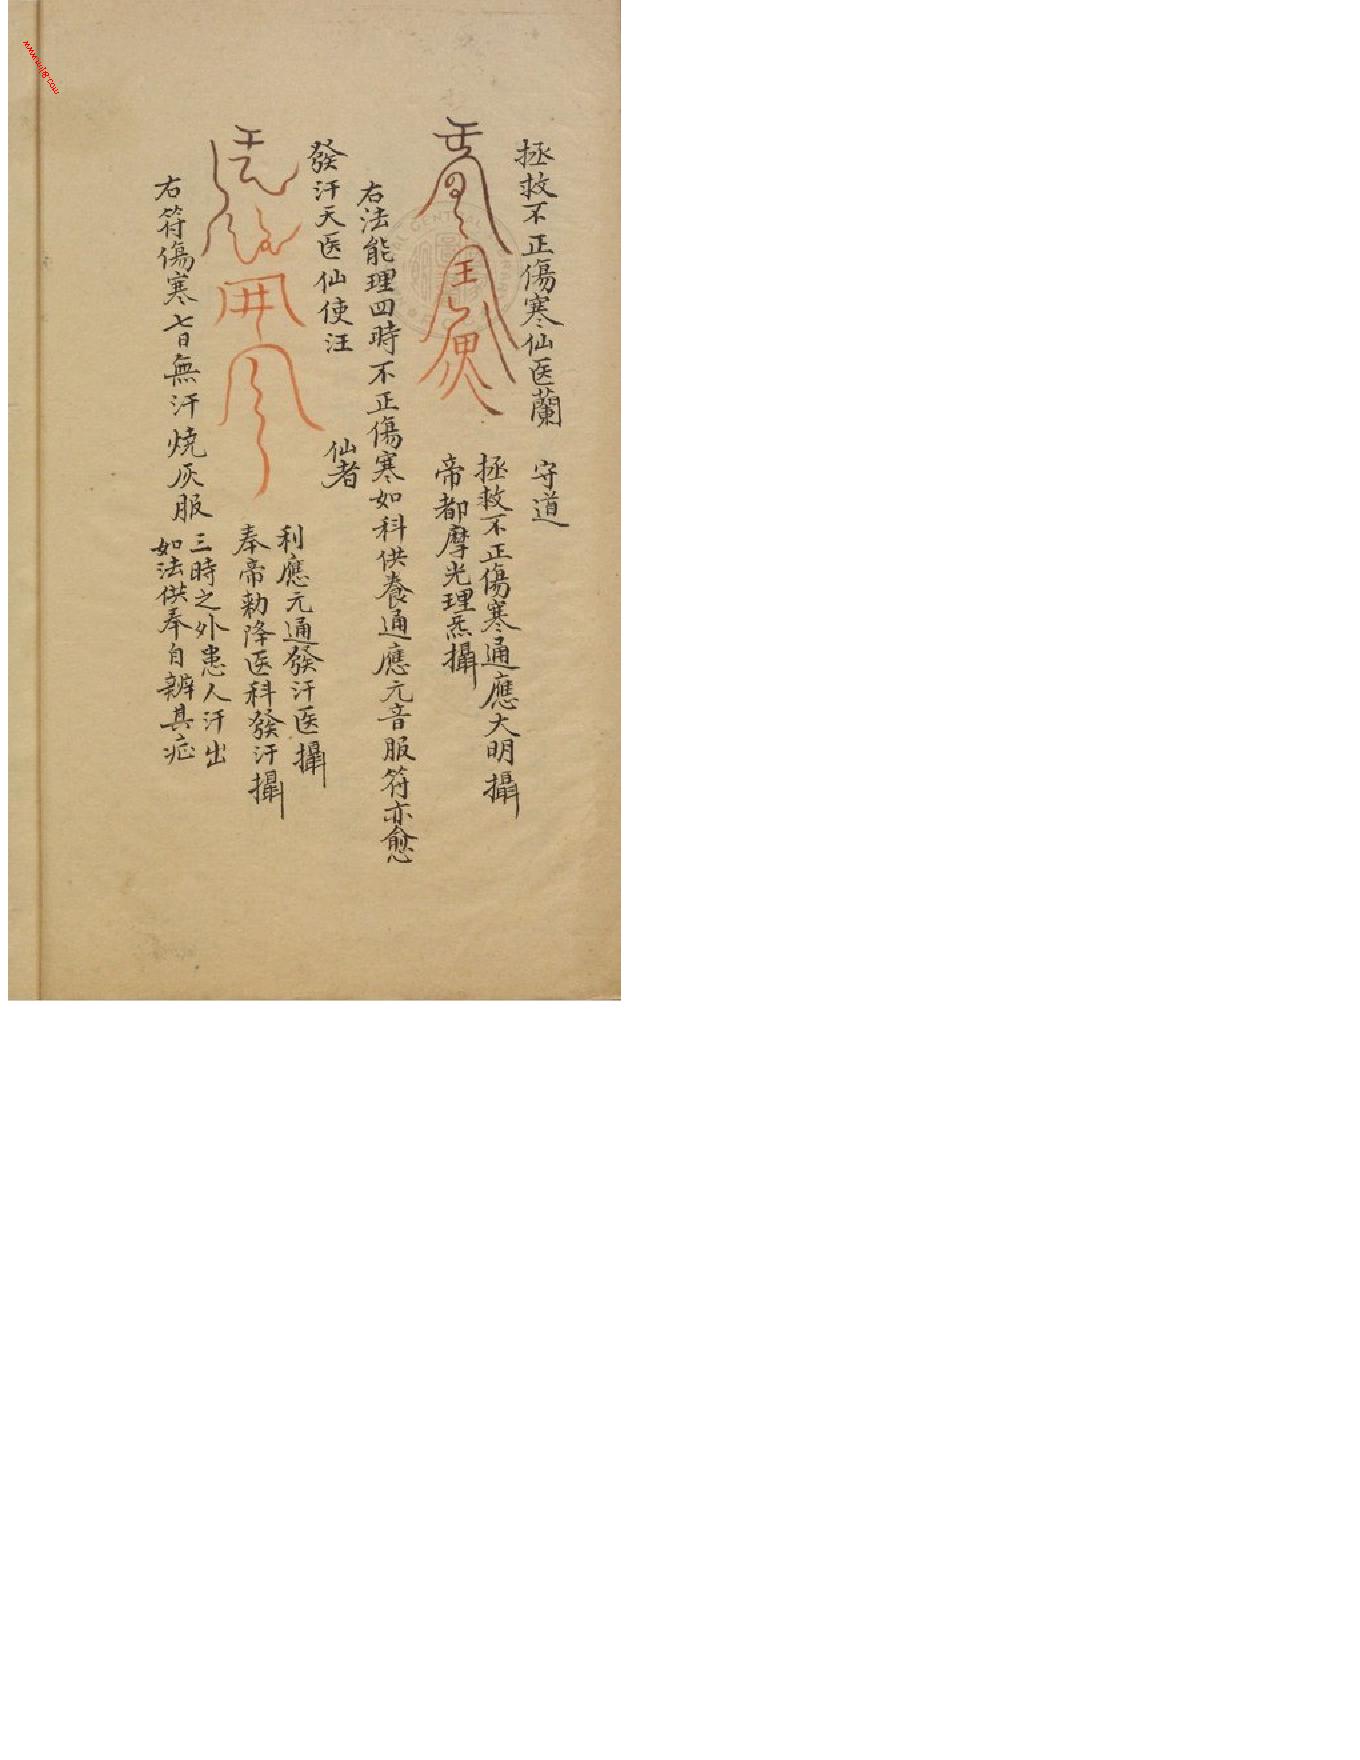 拯救不正傷寒仙医蘭 守道
拯救不正傷寒通應大明攝
帝都摩光理炁攝
右法能理四時不正傷寒如科供養通應元音服符亦愈
發汗天医仙使汪 仙者
利應元通發汗医攝
奉帝勅降医科發汗攝
右符傷寒七日無汗燒灰服
三時之外患人汗出
如法供奉自辦其症